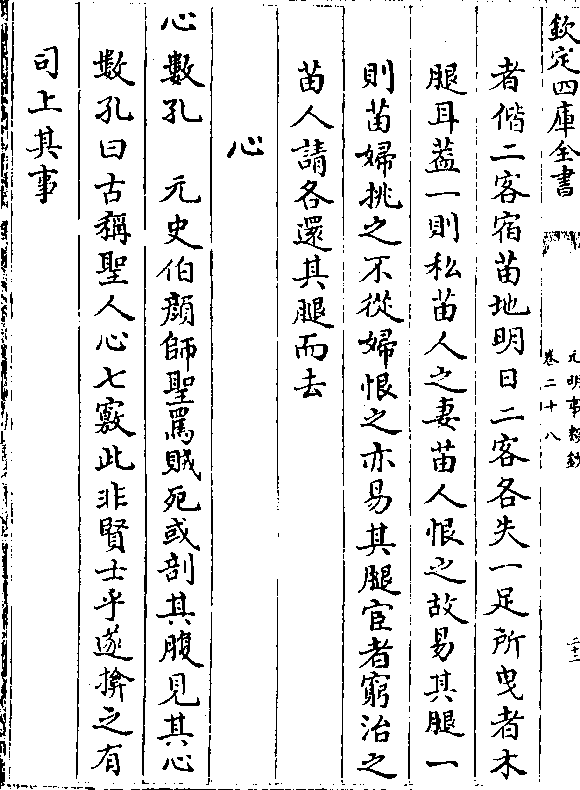 欽定四庫全書
元明事類鈔
卷二十八
二十三
者偕二客宿苗地明日二客各失一足所曵者木
腿耳葢一則私苗人之妻苗人恨之故易其腿一
則苗婦挑之不從婦恨之亦易其腿宦者窮治之
苗人請各還其腿而去
心
心數孔 元史伯顔師聖罵賊死或剖其腹見其心
數孔曰古稱聖人心七竅此非賢士乎遂揜之有
司上其事